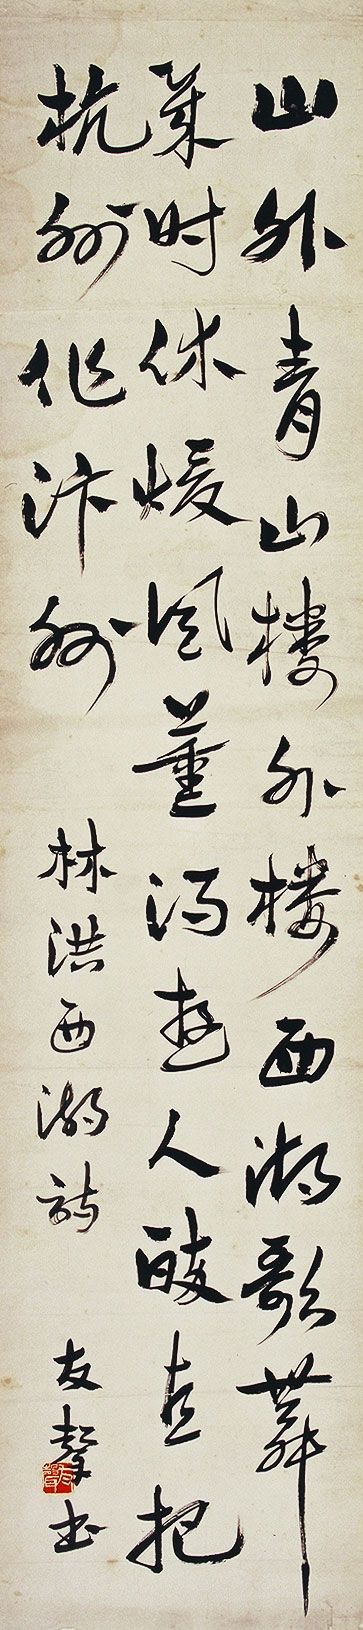 山外青山楼外楼西湖歌舞
幾时休煖风薰得遊人醉直把
杭州作汴州
林洪西湖诗
友聲书